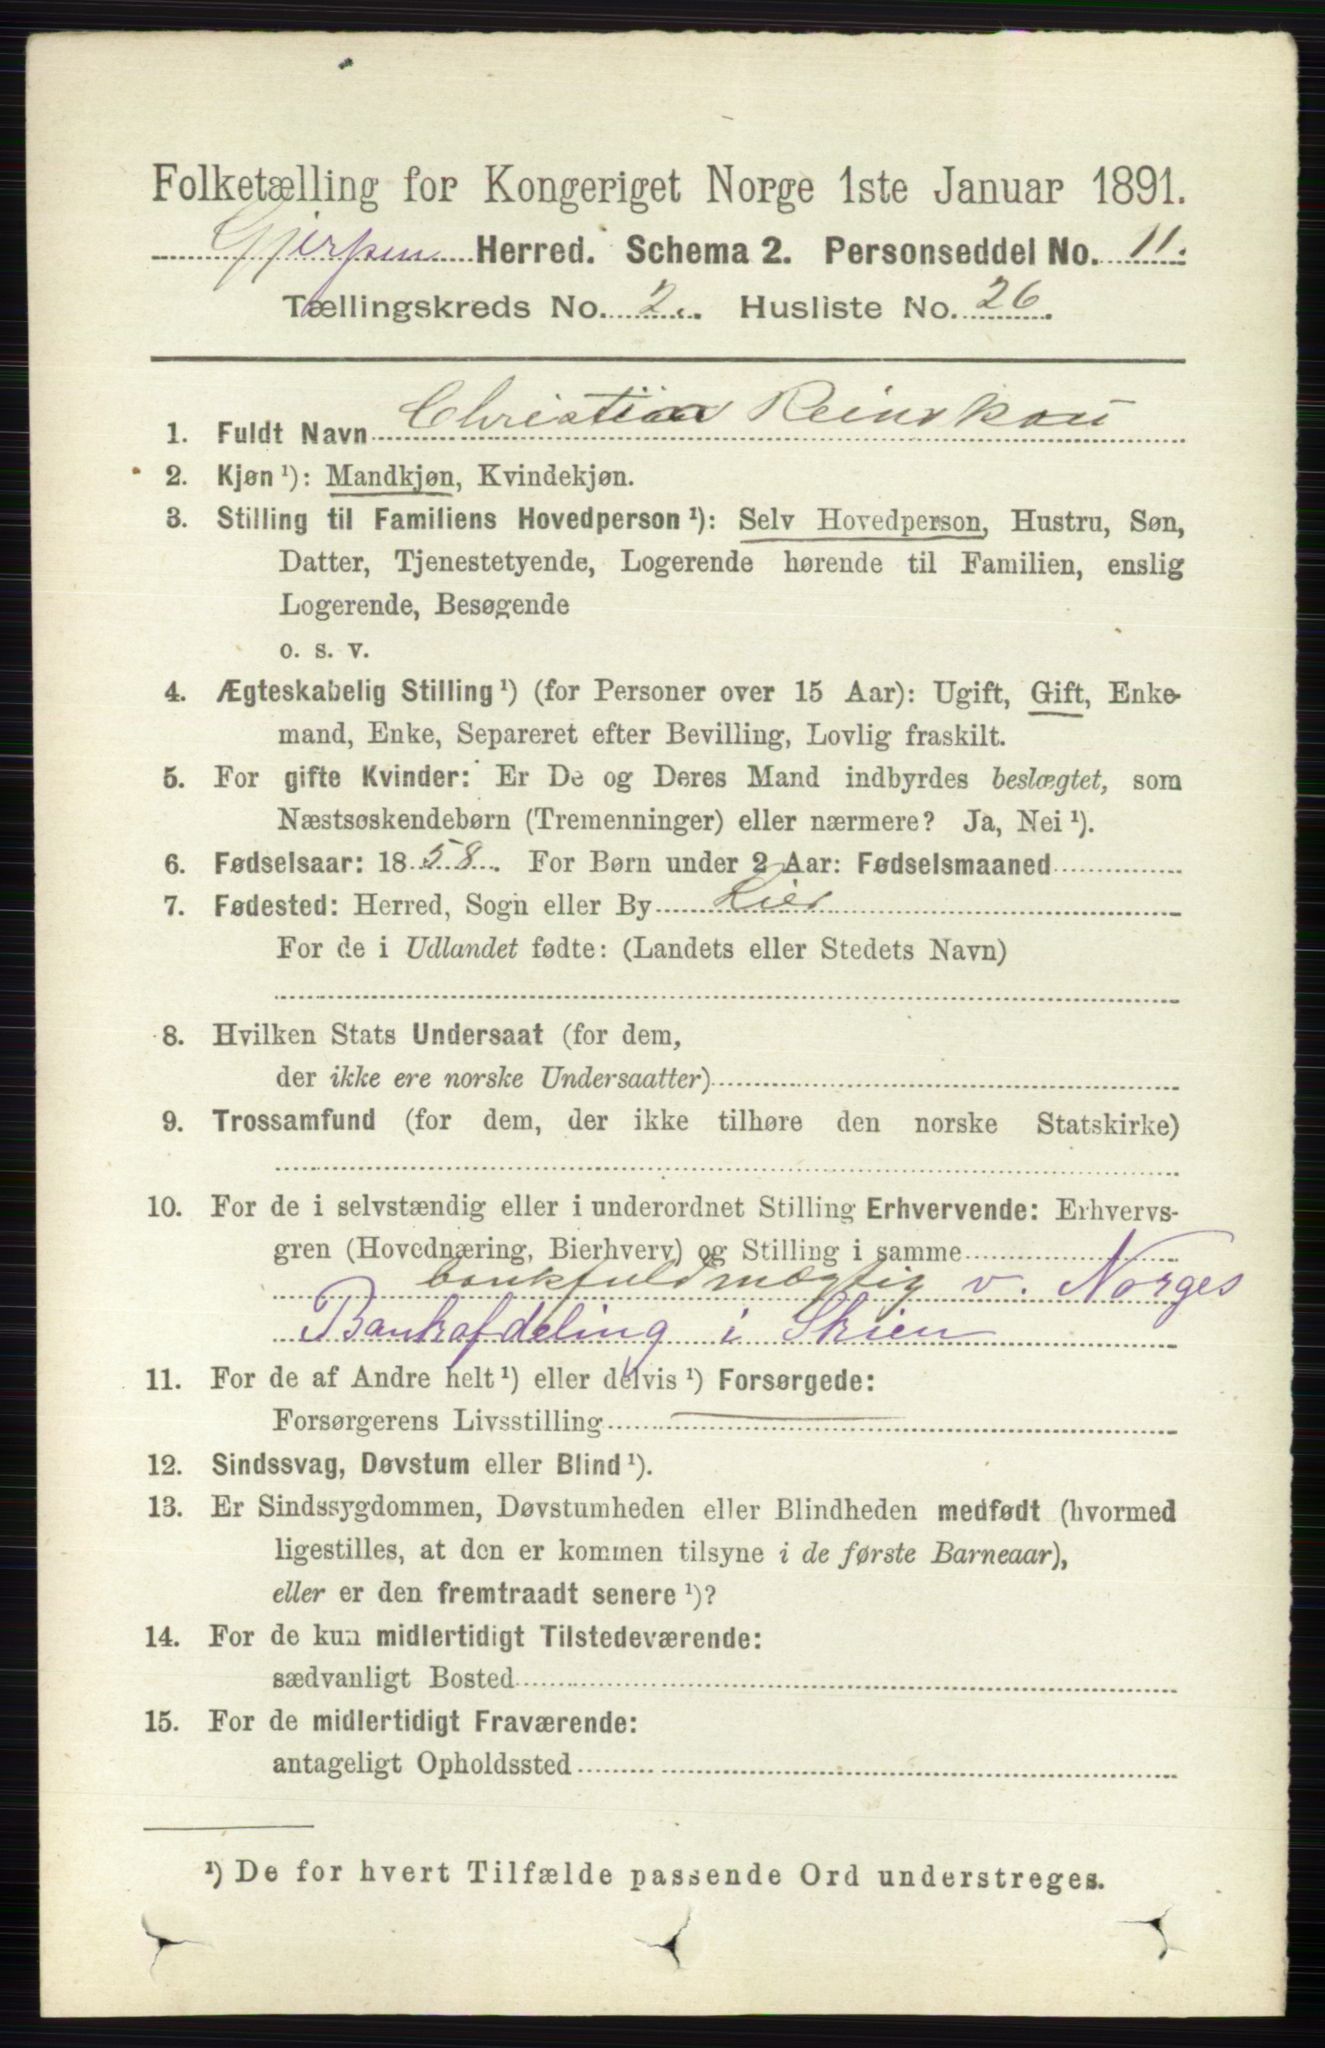 Folketælling for Kongeriget Norge 1ste Januar 1891.
Gjerpen Herred. Schema 2. Personseddel No. 11.
Tællingskreds No. 2. Husliste No. 26.
1. Fuldt Navn Christian Reinskou
2. Kjøn ¹): Mandkjøn, Kvindekjøn.
3. Stilling til Familiens Hovedperson ¹): Selv Hovedperson, Hustru, Søn,
Datter, Tjenestetyende, Logerende hørende til Familien, enslig
Logerende, Besøgende
o. s. v.
4. Ægteskabelig Stilling ¹) (for Personer over 15 Aar): Ugift, Gift, Enke-
mand, Enke, Separeret efter Bevilling, Lovlig fraskilt.
5. For gifte Kvinder: Er De og Deres Mand indbyrdes beslægtet, som
Næstsøskendebørn (Tremenninger) eller nærmere? Ja, Nei ¹).
6. Fødselsaar: 1858. For Børn under 2 Aar: Fødselsmaaned
7. Fødested: Herred, Sogn eller By Lier
For de i Udlandet fødte: (Landets eller Stedets Navn)
8. Hvilken Stats Undersaat (for dem,
der ikke ere norske Undersaatter)
9. Trossamfund (for dem, der ikke tilhøre den norske Statskirke)
10. For de i selvstændig eller i underordnet Stilling Erhvervende: Erhvervs-
gren (Hovednæring, Bierhverv) og Stilling i samme
bankfuldmægtig v. Norges
Bankafdeling i Skien
11. For de af Andre helt ¹) eller delvis ¹) Forsørgede:
Forsørgerens Livsstilling
12. Sindssvag, Døvstum eller Blind ¹).
13. Er Sindssygdommen, Døvstumheden eller Blindheden medfødt (hvormed
ligestilles, at den er kommen tilsyne i de første Barneaar),
eller er den fremtraadt senere ¹)?
14. For de kun midlertidigt Tilstedeværende:
sædvanligt Bosted
15. For de midlertidigt Fraværende:
antageligt Opholdssted
¹) De for hvert Tilfælde passende Ord understreges.